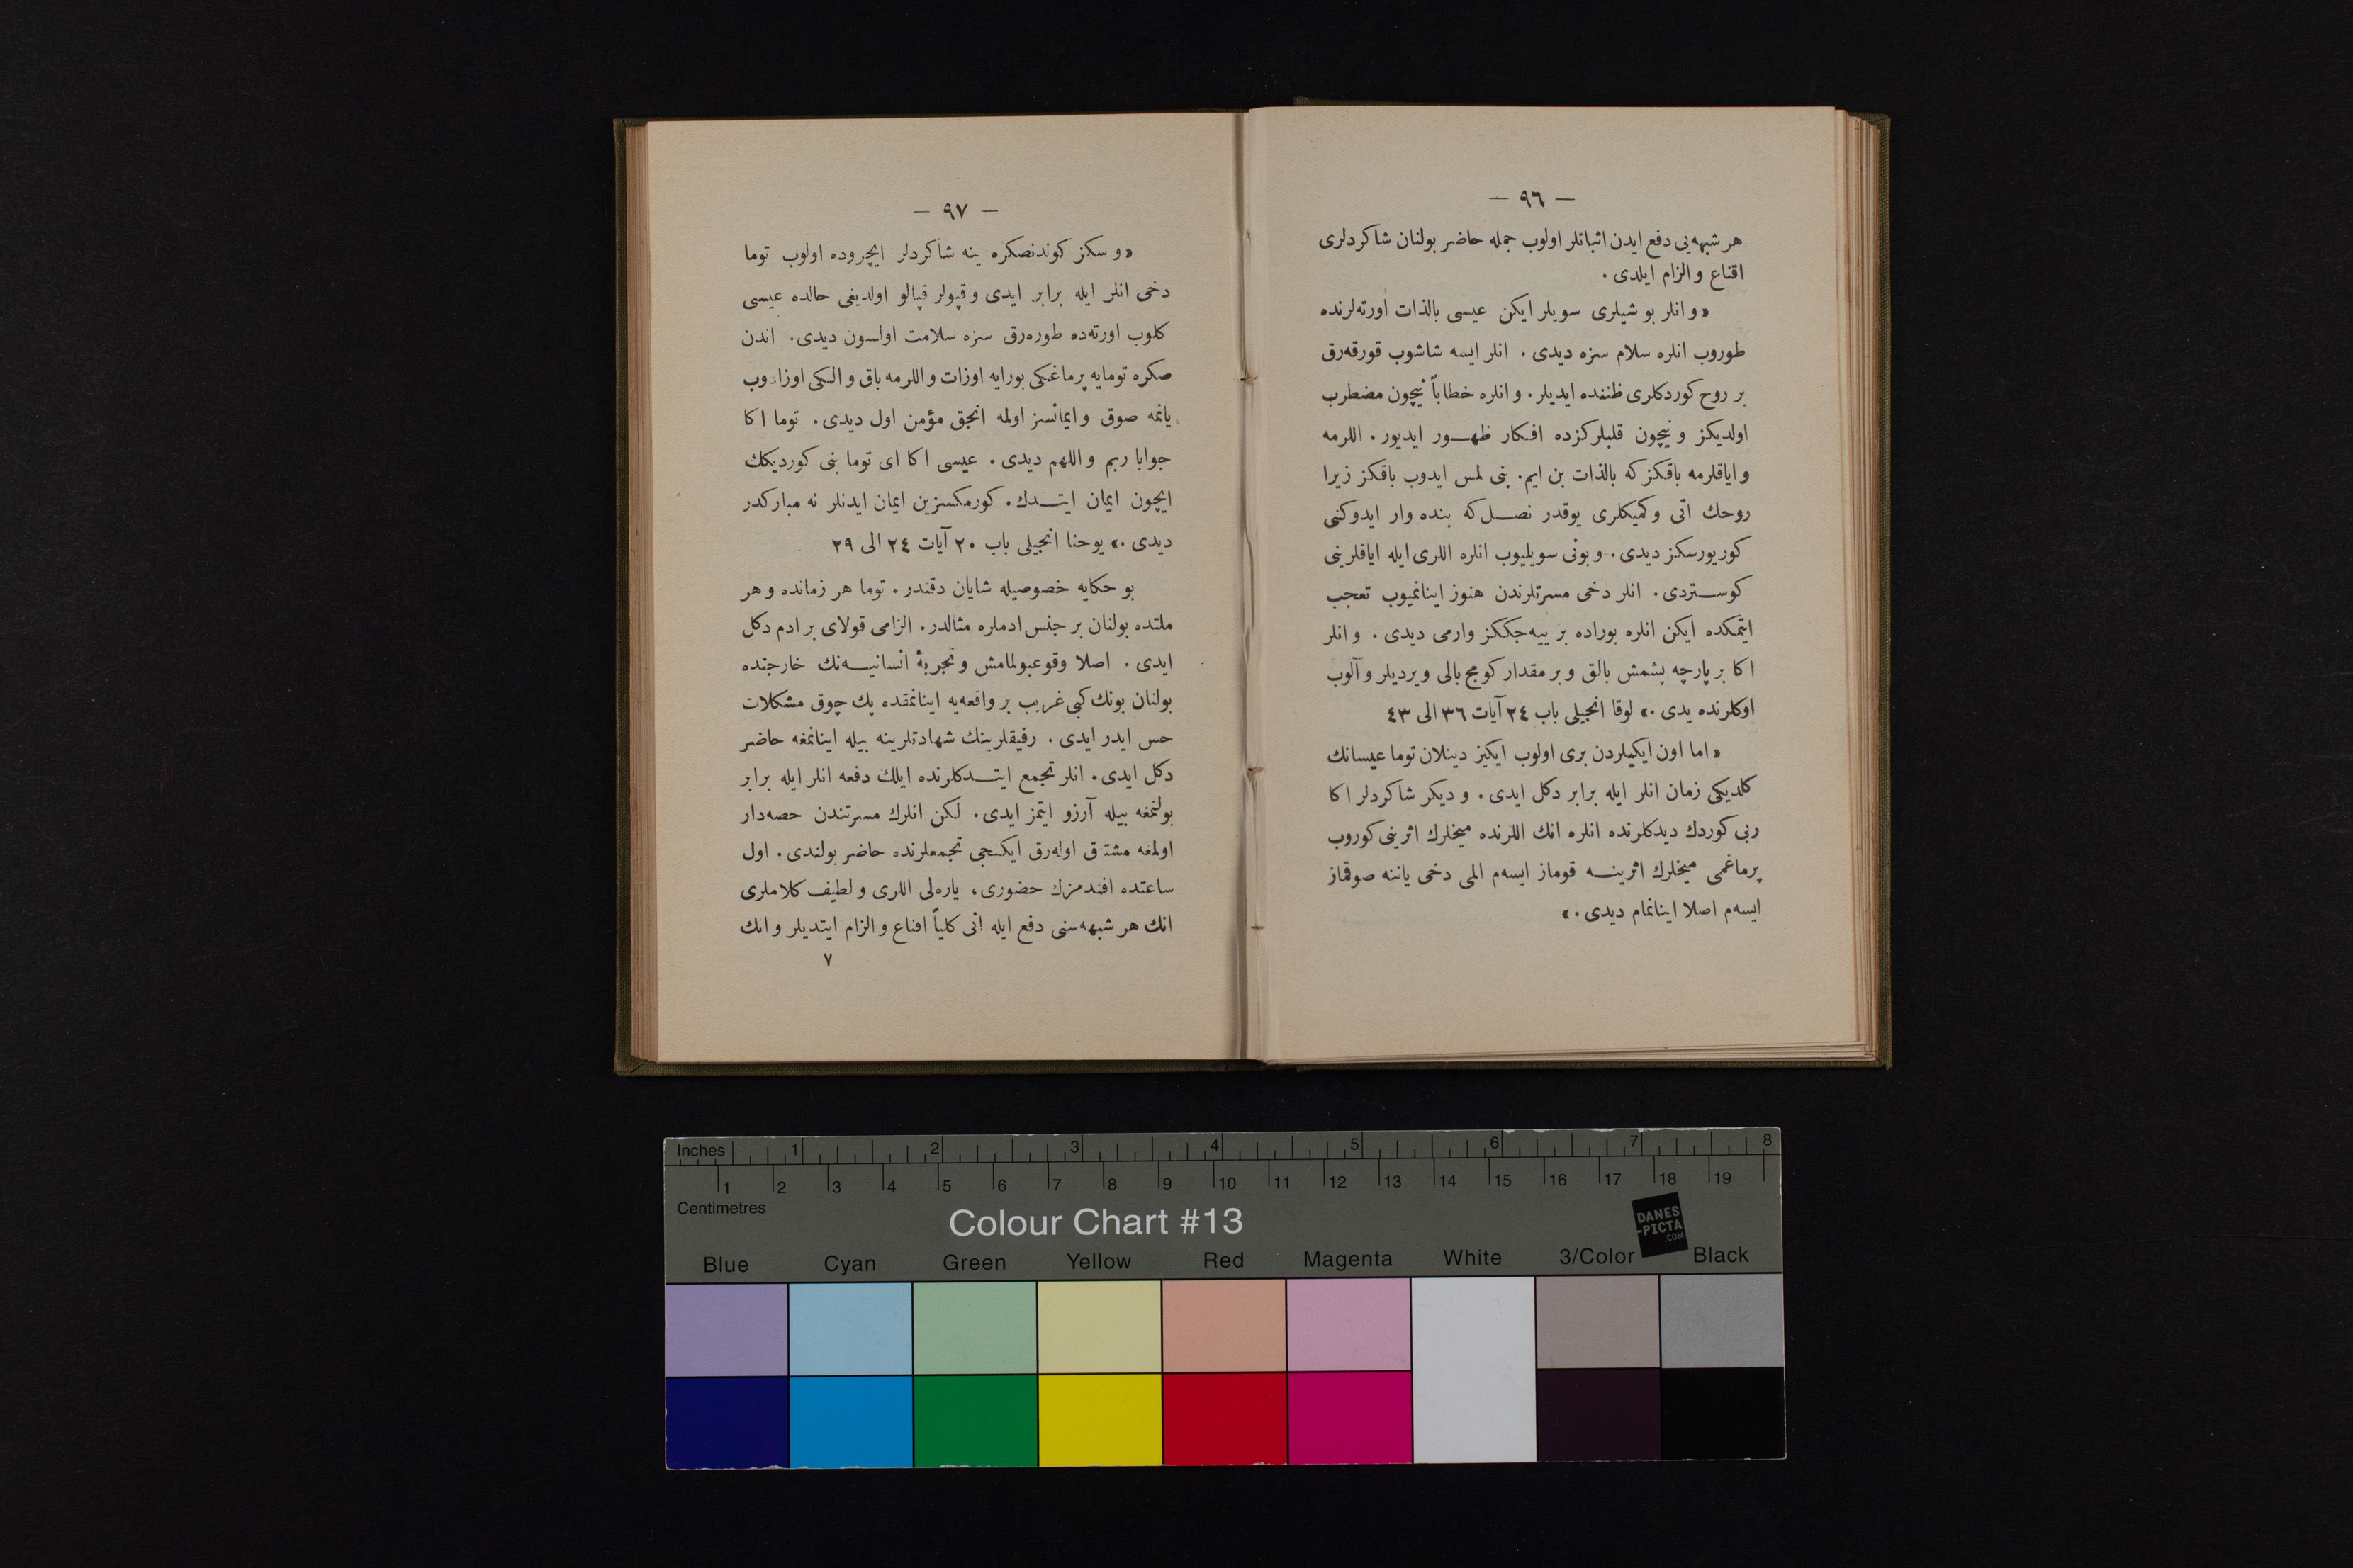 — ٩٦ —
هر شبهه‌یی دفع ایدن اثباتلر اولوب جمله حاضر بولنان شاکردلری
اقناع و الزام ایلدی .
« و انلر بو شیلری سویلر ایکن عیسی بالذات اورته‌لرنده
طوروب انلره سلام سزه دیدی . انلر ایسه شاشوب قورقه‌رق
بر روح کوردکلری ظننده ایدیلر . و انلره خطاباً نیچون مضطرب
اولدیکز و نیچون قلبلرکزده افکار ظهور ایدیور . اللرمه
و ایاقلرمه باقکز که بالذات بن ایم . بنی لمس ایدوب باقکز زیرا
روحك اتی و کمیکلری یوقدر نصل که بنده وار ایدوکنی
کوریورسکز دیدی . و بونی سویلیوب انلره اللری ایله ایاقلرینی
کوستردی . انلر دخی مسرتلرندن هنوز اینانمیوب تعجب
ایتمکده ایکن انلره بوراده بر ییه‌جککز وارمی دیدی . و انلر
اکا بر پارچه پشمش بالق و بر مقدار کومج بالی ویردیلر و آلوب
اوکلرنده یدی . » لوقا انجیلی باب ٢٤ آیات ٣٦ الی ٤٣
« اما اون ایکیلردن بری اولوب ایکیز دینلان توما عیسانك
کلدیکی زمان انلر ایله برابر دکل ایدی . و دیکر شاکردلر اکا
ربی کوردك دیدکلرنده انلره انك اللرنده میخلرك اثرینی کوروب
پرماغمی میخلرك اثرینه قوماز ایسه‌م المی دخی یاننه صوقماز
ایسه‌م اصلا اینانمام دیدی . »
— ٩٧ —
« و سکز کوندنصکره ینه شاکردلر ایچروده اولوب توما
دخی انلر ایله برابر ایدی و قپولر قپالو اولدیغی حالده عیسی
کلوب اورته‌ده طوره‌رق سزه سلامت اولسون دیدی . اندن
صکره تومایه پرماغکی بورایه اوزات و اللرمه باق و الکی اوزادوب
یانمه صوق و ایمانسز اولمه انجق مؤمن اول دیدی . توما اکا
جوابا ربم و اللهم دیدی . عیسی اکا ای توما بنی کوردیکك
ایچون ایمان ایتدك . کورمکسزین ایمان ایدنلر نه مبارکدر
دیدی . » یوحنا انجیلی باب ٢٠ آیات ٢٤ الی ٢٩
بو حکایه خصوصیله شایان دقتدر . توما هر زمانده و هر
ملتده بولنان بر جنس ادملره مثالدر . الزامی قولای بر ادم دکل
ایدی . اصلا وقوعبولمامش و تجربۀ انسانیه‌نك خارجنده
بولنان بونك کبی غریب بر واقعه‌یه اینانمقده پك چوق مشکلات
حس ایدر ایدی . رفیقلرینك شهادتلرینه بیله اینانمغه حاضر
دکل ایدی . انلر تجمع ایتدکلرنده ایلك دفعه انلر ایله برابر
بولنمغه بیله آرزو ایتمز ایدی . لکن انلرك مسرتندن حصه‌دار
اولمغه مشتاق اوله‌رق ایکنجی تجمعلرنده حاضر بولندی . اول
ساعتده افندمزك حضوری ، یاره‌لی اللری و لطیف کلاملری
انك هر شبهه‌سنی دفع ایله انی کلیاً اقناع و الزام ایتدیلر و انك
٧
Inches 1 2 3 4 5 6 7 8
1 2 3 4 5 6 7 8 9 10 11 12 13 14 15 16 17 18 19
Centimetres
Colour Chart #13
DANES
-PICTA
.COM
Blue Cyan Green Yellow Red Magenta White 3/Color Black